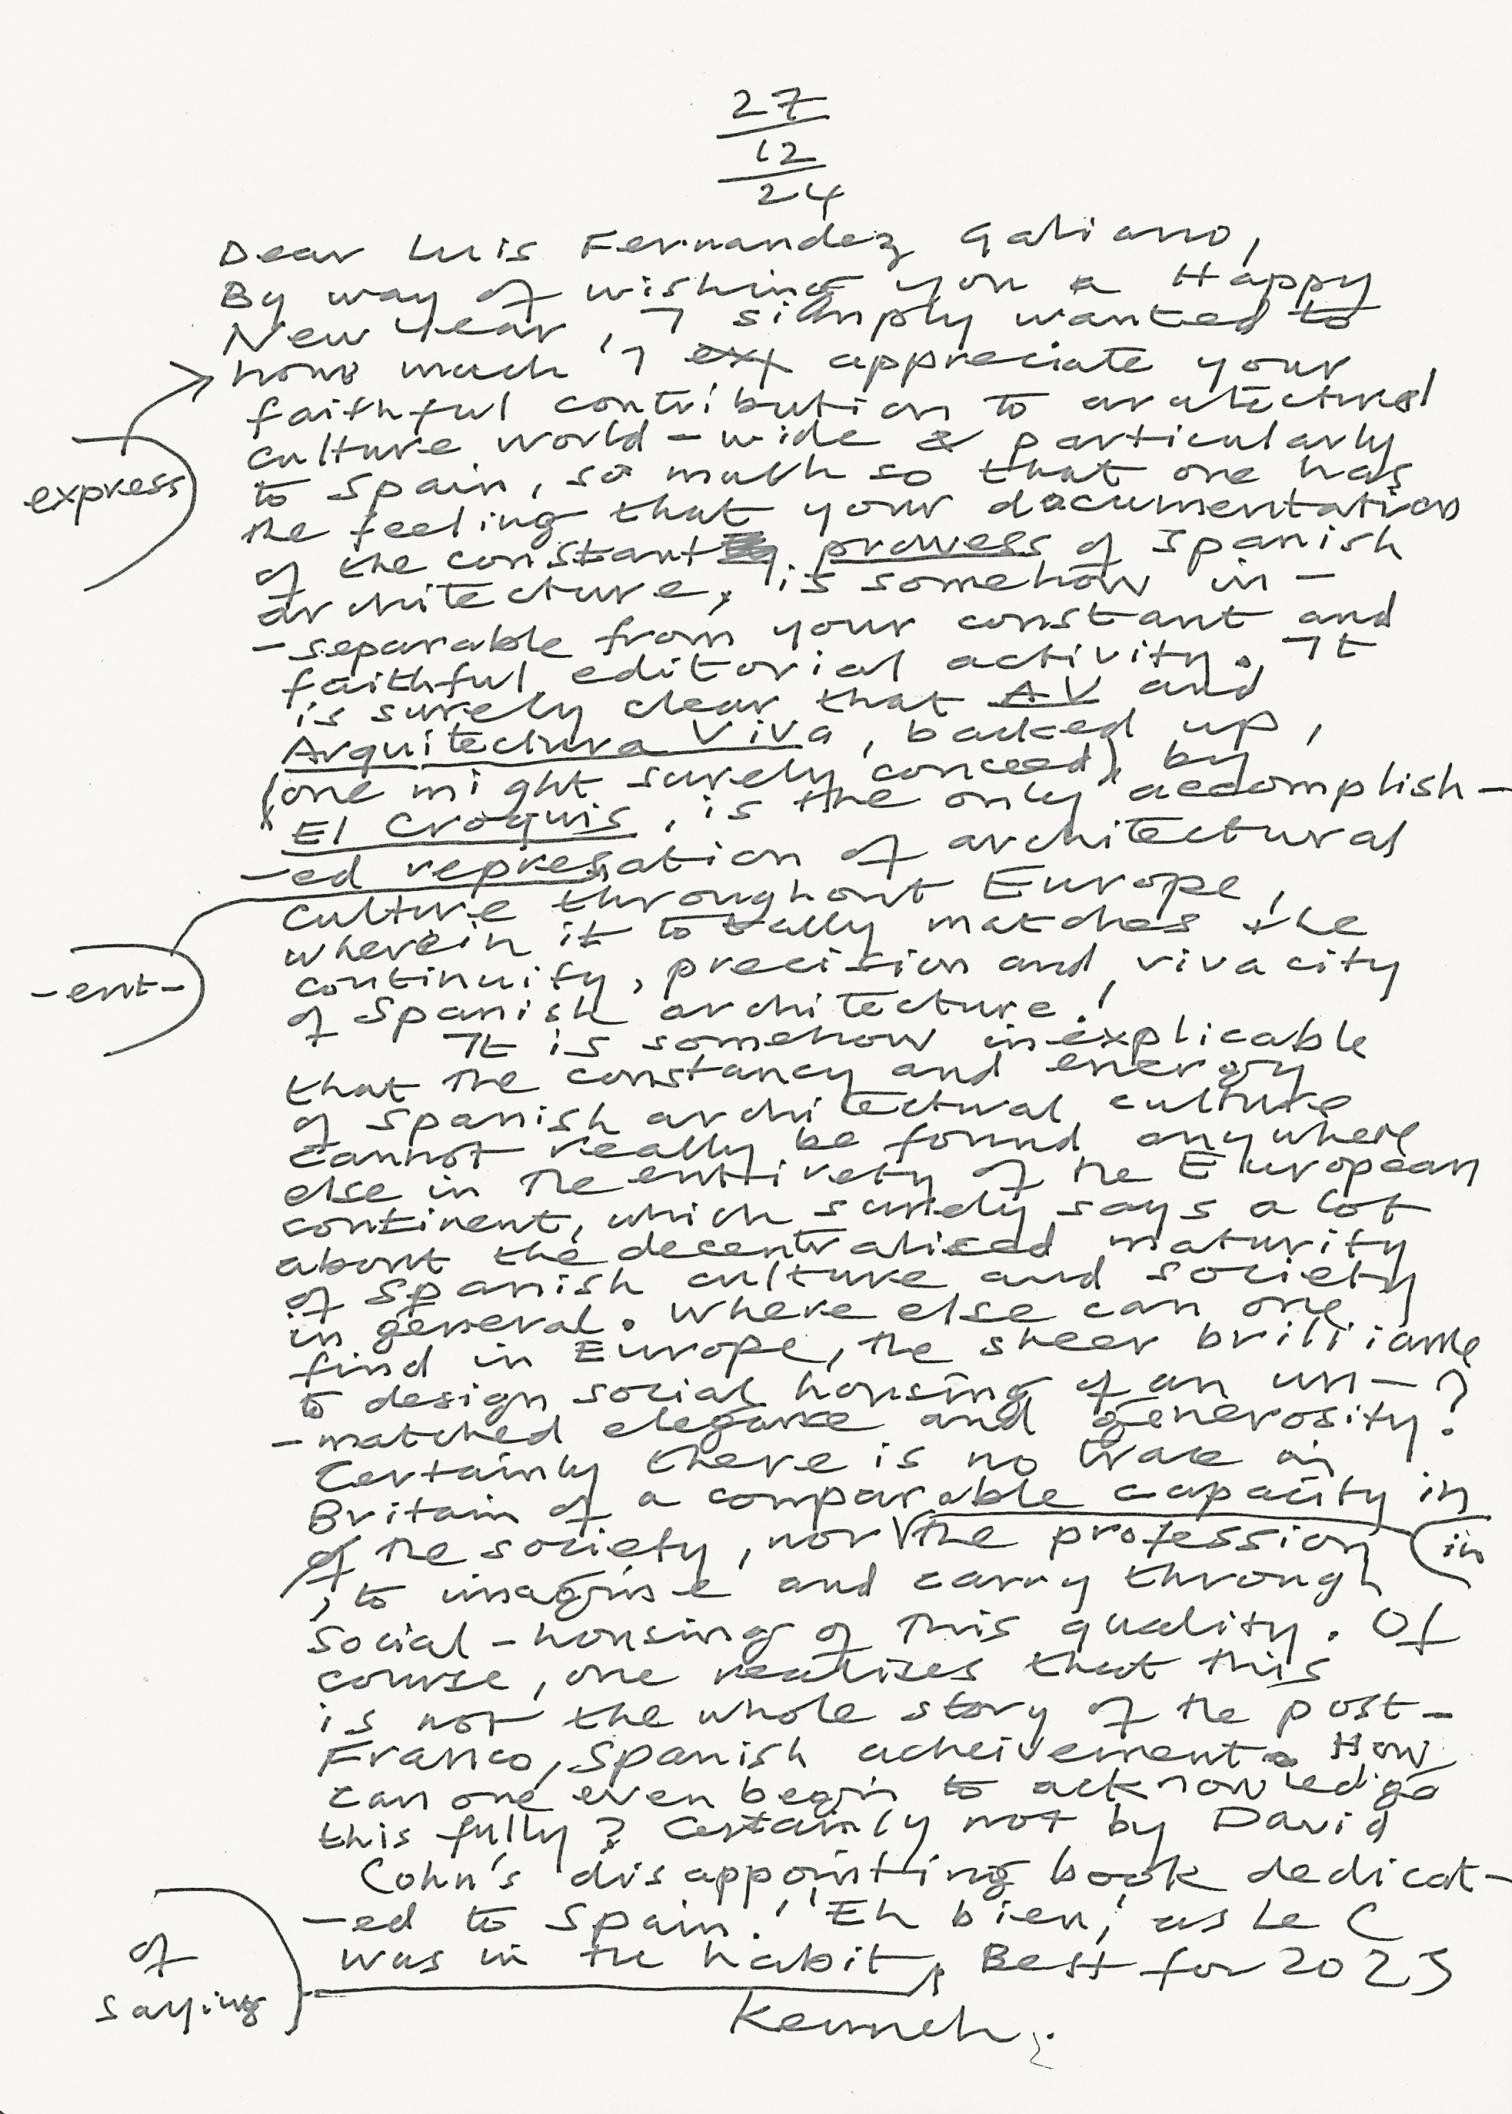 27
12
24
Dear Luis Fernandez Galiano,
By way of wishing you a Happy
New Year, I simply wanted to
how much I ex appreciate your
faithful contribution to architectural
culture world-wide & particularly
express
to Spain, so much so that one has
the feeling that your documentation
of the constant prowess of Spanish
architecture, is somehow in-
-separable from your constant and
faithful editorial activity. It
is surely clear that AV and
Arquitectura Viva, backed up,
(one might surely conceed), by
El Croquis, is the only accomplish-
-ed represation of architectural
culture throughout Europe,
wherein it totally matches the
-ent-
continuity, precision and vivacity
of Spanish architecture!
It is somehow inexplicable
that the constancy and energy
of Spanish architectural culture
cannot really be found anywhere
else in the entirety of the European
continent, which surely says a lot
about the decentralised maturity
of Spanish culture and society
in general. Where else can one
find in Europe, the sheer brilliance
to design social housing of an un-
-matched elegance and generosity?
Certainly there is no trace in
Britain of a comparable capacity in
of the society, nor the profession
in
, to imagine and carry through
social-housing of this quality. Of
course, one realizes that this
is not the whole story of the post-
Franco, Spanish acheivement. How
can one even begin to acknowledge
this fully? Certainly not by David
Cohn's disappointing book dedicat-
-ed to Spain! 'Eh bien,' as Le C
was in the habit, Best for 2025
of
saying
Kenneth.